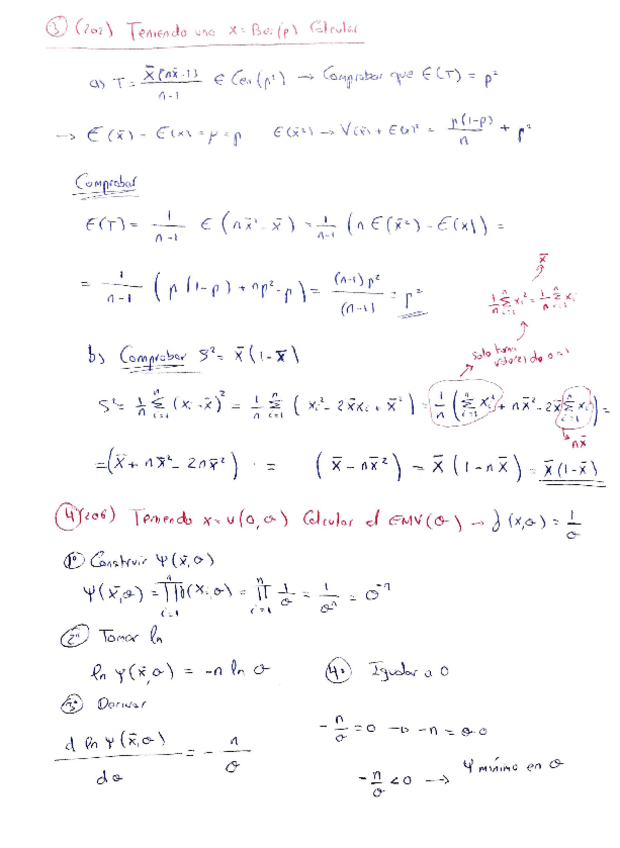 ③ (202) Teniendo una x = Be(p) Calcular
a) T = x̄(nx̄-1)/(n-1) ∈ Cen(p²) → Comprobar que E(T) = p²
→ E(x̄) = E(x) = μ = p E(x̄²) → V(x̄) + E(x)² = p(1-p)/n + p²
Comprobar
E(T) = 1/(n-1) E(nx̄² - x̄) = 1/(n-1) (n E(x̄²) - E(x)) =
= 1/(n-1) (p(1-p) + np² - p) = (n-1)p²/(n-1) = p²
x̄
1/n Σᵢ₌₁ⁿ xᵢ² = 1/n Σᵢ₌₁ⁿ xᵢ
solo toma valores de 0 a 1
b) Comprobar S² = x̄(1-x̄)
S² = 1/n Σᵢ₌₁ⁿ (xᵢ - x̄)² = 1/n Σᵢ₌₁ⁿ (xᵢ² - 2x̄xᵢ + x̄²) = 1/n (Σᵢ₌₁ⁿ xᵢ² + nx̄² - 2x̄ Σᵢ₌₁ⁿ xᵢ) =
nx̄
= (x̄ + nx̄² - 2nx̄²) = (x̄ - nx̄²) = x̄(1 - nx̄) = x̄(1-x̄)
④ (206) Teniendo x = U(0,θ) Calcular el EMV(θ) → f(x,θ) = 1/θ
1º Construir Ψ(x̄,θ)
Ψ(x̄,θ) = ∏ᵢ₌₁ⁿ f(xᵢ,θ) = ∏ᵢ₌₁ⁿ 1/θ = 1/θⁿ = θ⁻ⁿ
2º Tomar ln
ln Ψ(x̄,θ) = -n ln θ
3º Derivar
d ln Ψ(x̄,θ)/dθ = - n/θ
4º Igualar a 0
- n/θ = 0 → -n = θ·0
- n/θ < 0 → Ψ mínimo en θ